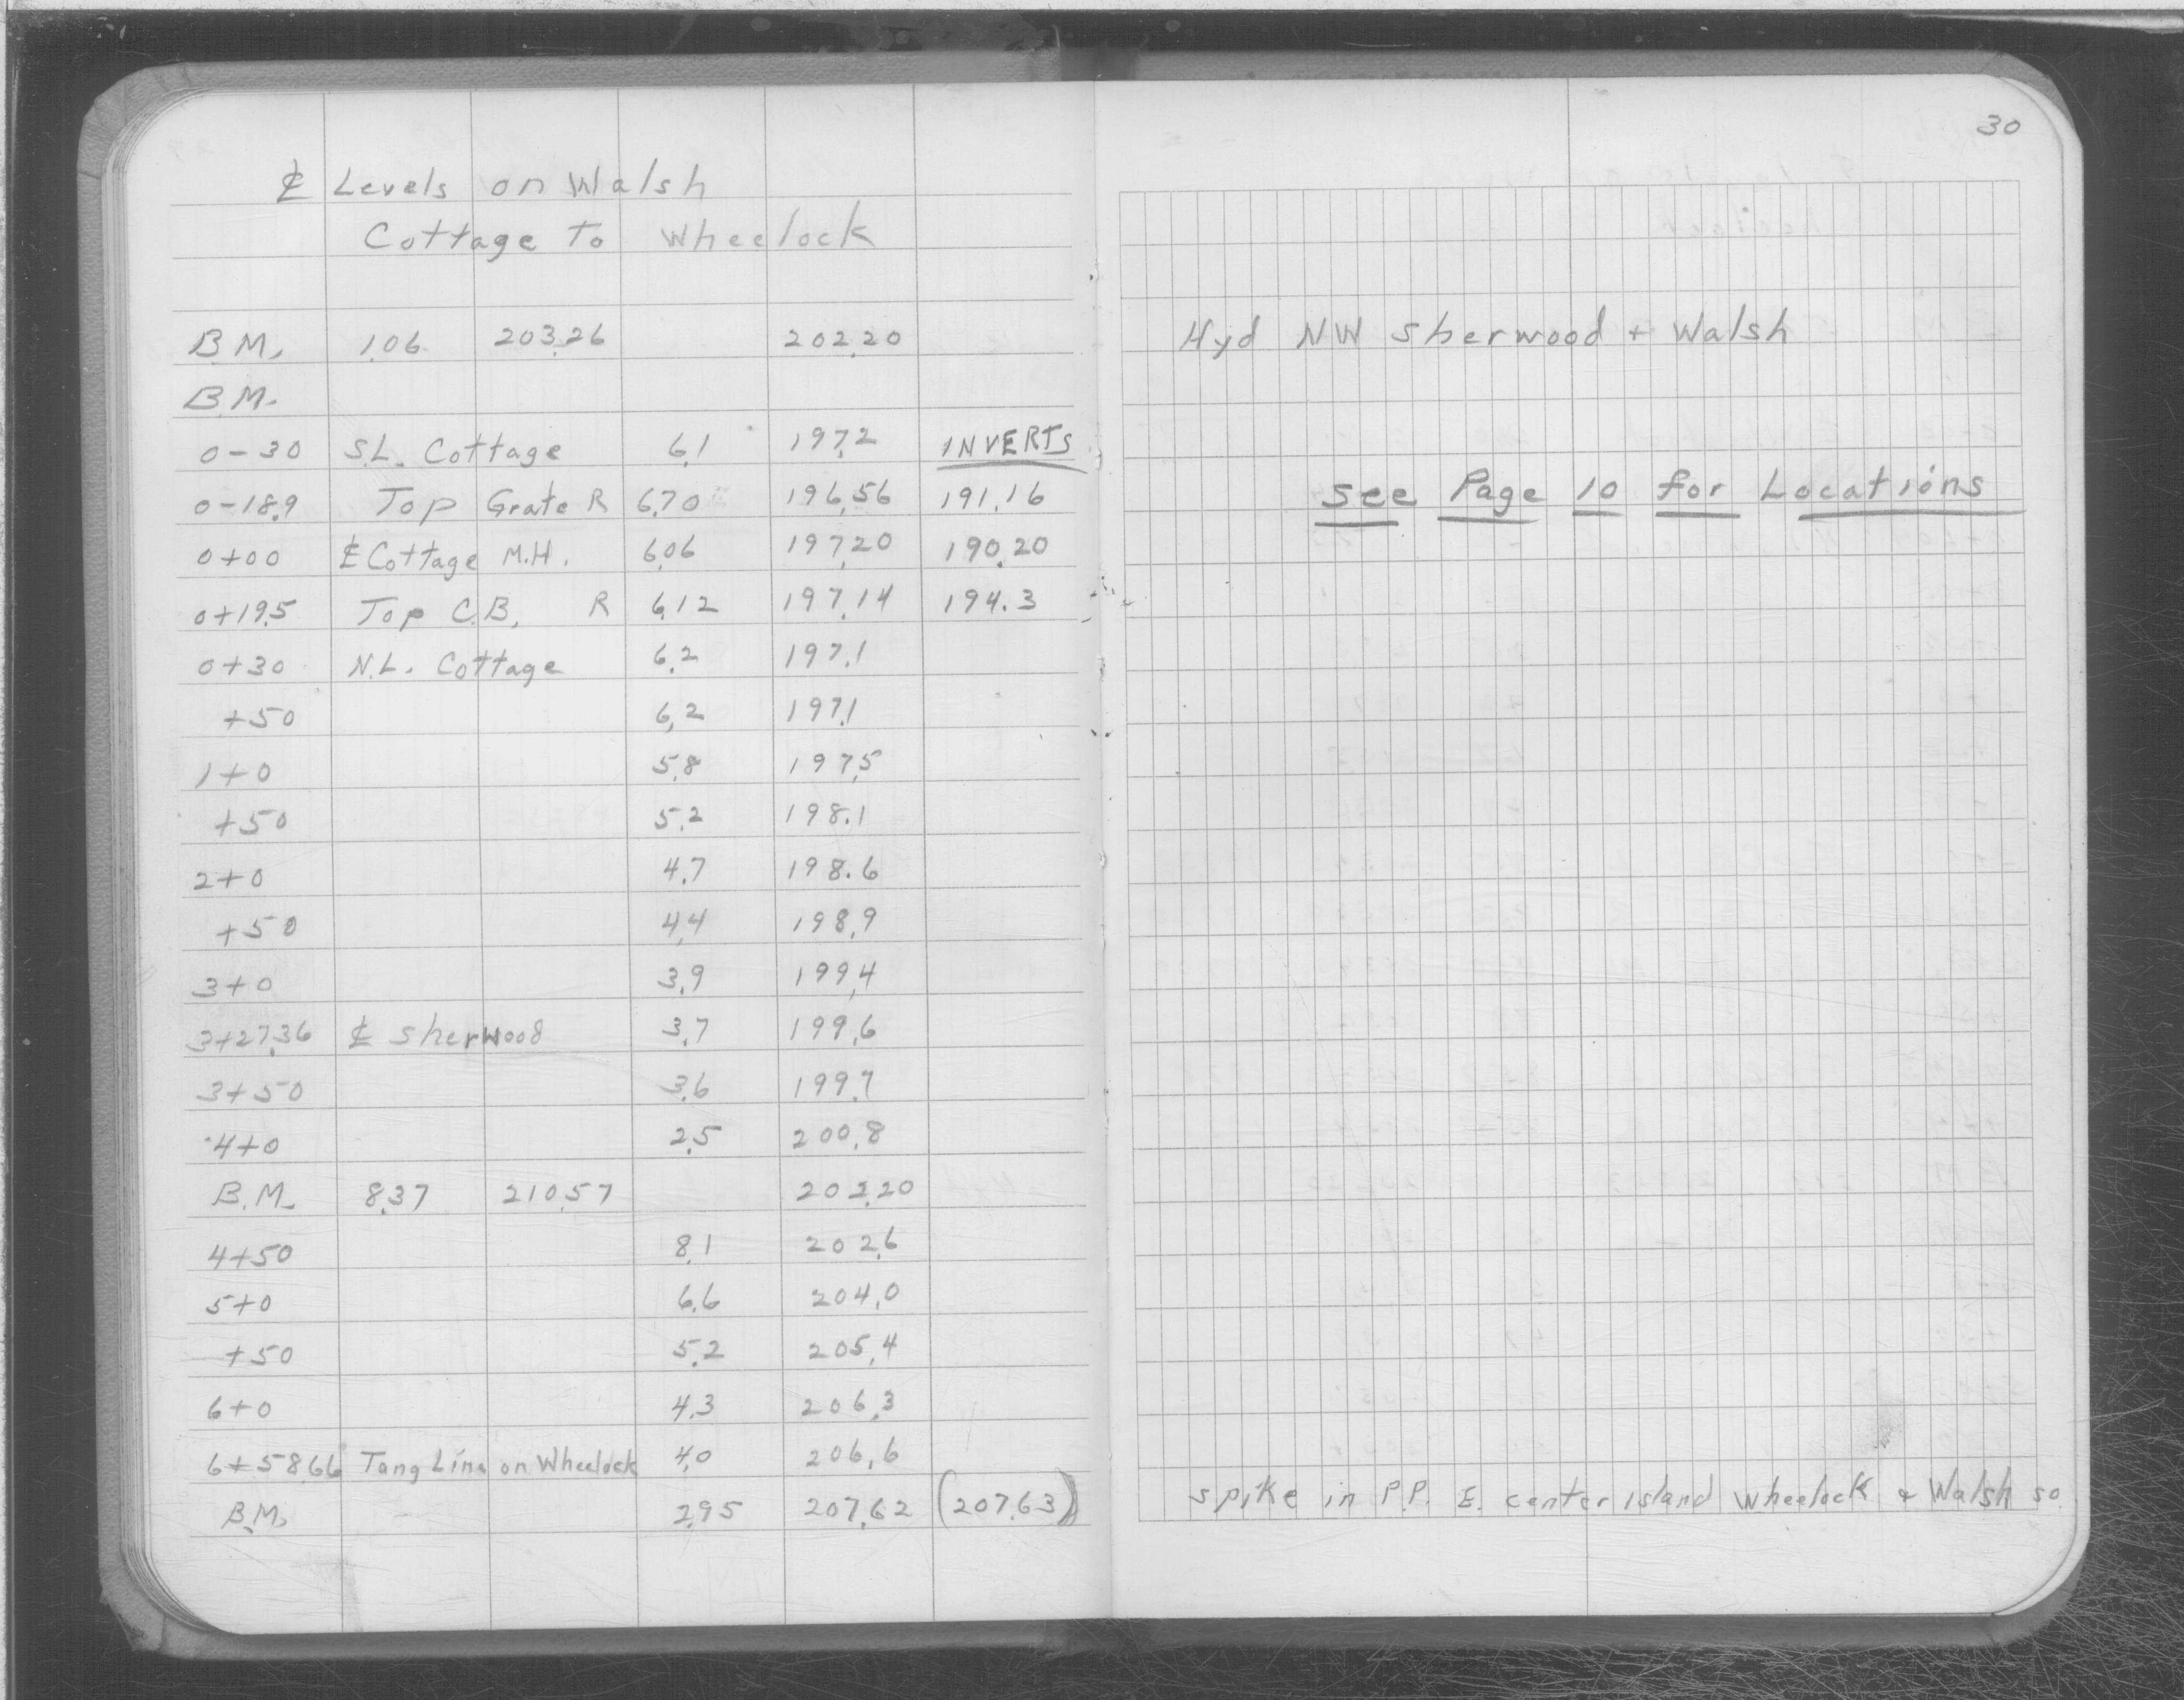 ℄ Levels on Walsh
Cottage to Wheelock
B.M. 1.06 203.26 202.20
B.M.
0-30 S.L. Cottage 6.1 197.2 INVERTS
0-18.9 Top Grate R 6.70 196.56 191.16
0+00 ℄ Cottage M.H. 6.06 197.20 190.20
0+19.5 Top C.B. R 6.12 197.14 194.3
0+30 N.L. Cottage 6.2 197.1
+50 6.2 197.1
1+0 5.8 197.5
+50 5.2 198.1
2+0 4.7 198.6
+50 4.4 198.9
3+0 3.9 199.4
3+27.36 ℄ Sherwood 3.7 199.6
3+50 3.6 199.7
4+0 2.5 200.8
B.M. 8.37 210.57 202.20
4+50 8.1 202.6
5+0 6.6 204.0
+50 5.2 205.4
6+0 4.3 206.3
6+58.66 Tang Line on Wheelock 4.0 206.6
B.M. 2.95 207.62 (207.63)
30
Hyd NW Sherwood + Walsh
See Page 10 for Locations
spike in P.P. E. center island Wheelock & Walsh so.